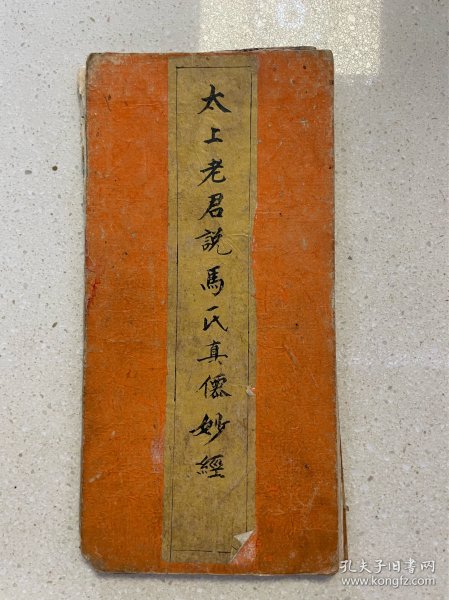 太上老君説馬氏真僊妙經
孔夫子旧书网
www.kongfz.com